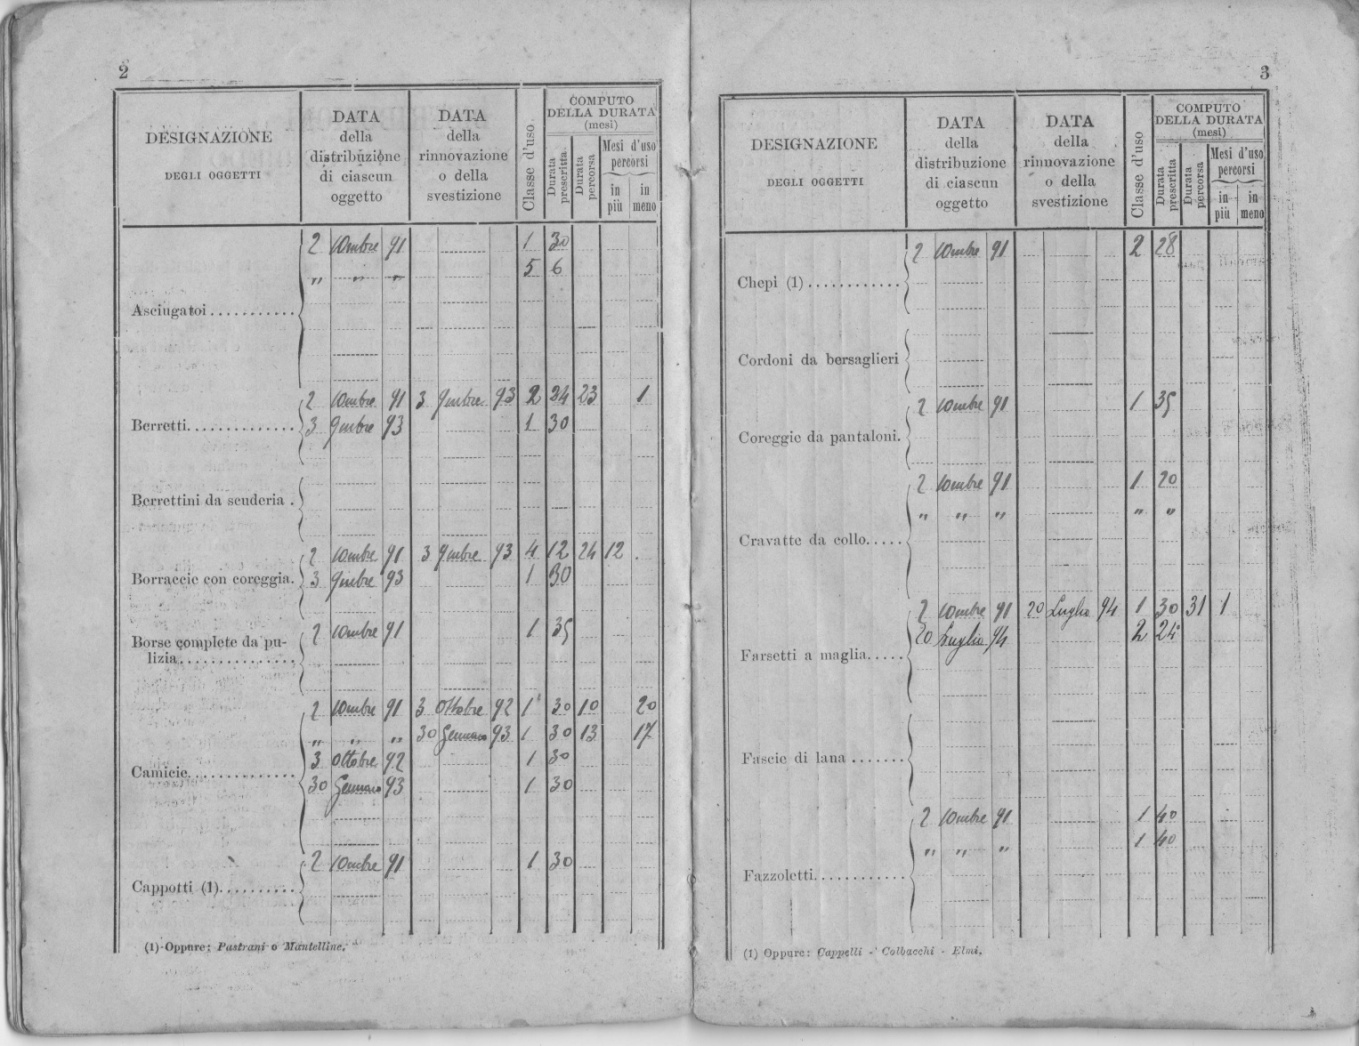 2
DESIGNAZIONE
DEGLI OGGETTI
DATA
della
distribuzione
di ciascun
oggetto
DATA
della
rinnovazione
o della
svestizione
Classe d'uso
COMPUTO
DELLA DURATA
(mesi)
Durata
prescritta
Durata
percorsa
Mesi d'uso
percorsi
in
più
in
meno
2 10mbre 91 1 30
" " " 5 6
Asciugatoi
2 10mbre 91 3 9mbre 93 2 24 23 1
Berretti
3 9mbre 93 1 30
Berrettini da scuderia
2 10mbre 91 3 9mbre 93 4 12 24 12
Borraccie con coreggia.
3 9mbre 93 1 30
2 10mbre 91 1 35
Borse complete da pu-
lizia
2 10mbre 91 3 Ottobre 92 1 30 10 20
" " " 30 Gennaio 93 1 30 13 17
3 Ottobre 92 1 30
Camicie
30 Gennaio 93 1 30
2 10mbre 91 1 30
Cappotti (1)
(1) Oppure: Pastrani o Mantelline.
3
DESIGNAZIONE
DEGLI OGGETTI
DATA
della
distribuzione
di ciascun
oggetto
DATA
della
rinnovazione
o della
svestizione
Classe d'uso
COMPUTO
DELLA DURATA
(mesi)
Durata
prescritta
Durata
percorsa
Mesi d'uso
percorsi
in
più
in
meno
2 10mbre 91 2 28
Chepi (1)
Cordoni da bersaglieri
2 10mbre 91 1 35
Coreggie da pantaloni.
2 10mbre 91 1 20
" " " " "
Cravatte da collo
2 10mbre 91 20 Luglio 94 1 30 31 1
20 Luglio 94 2 24
Farsetti a maglia
Fascie di lana
2 10mbre 91 1 40
" " " 1 40
Fazzoletti
(1) Oppure: Cappelli - Colbacchi - Elmi.